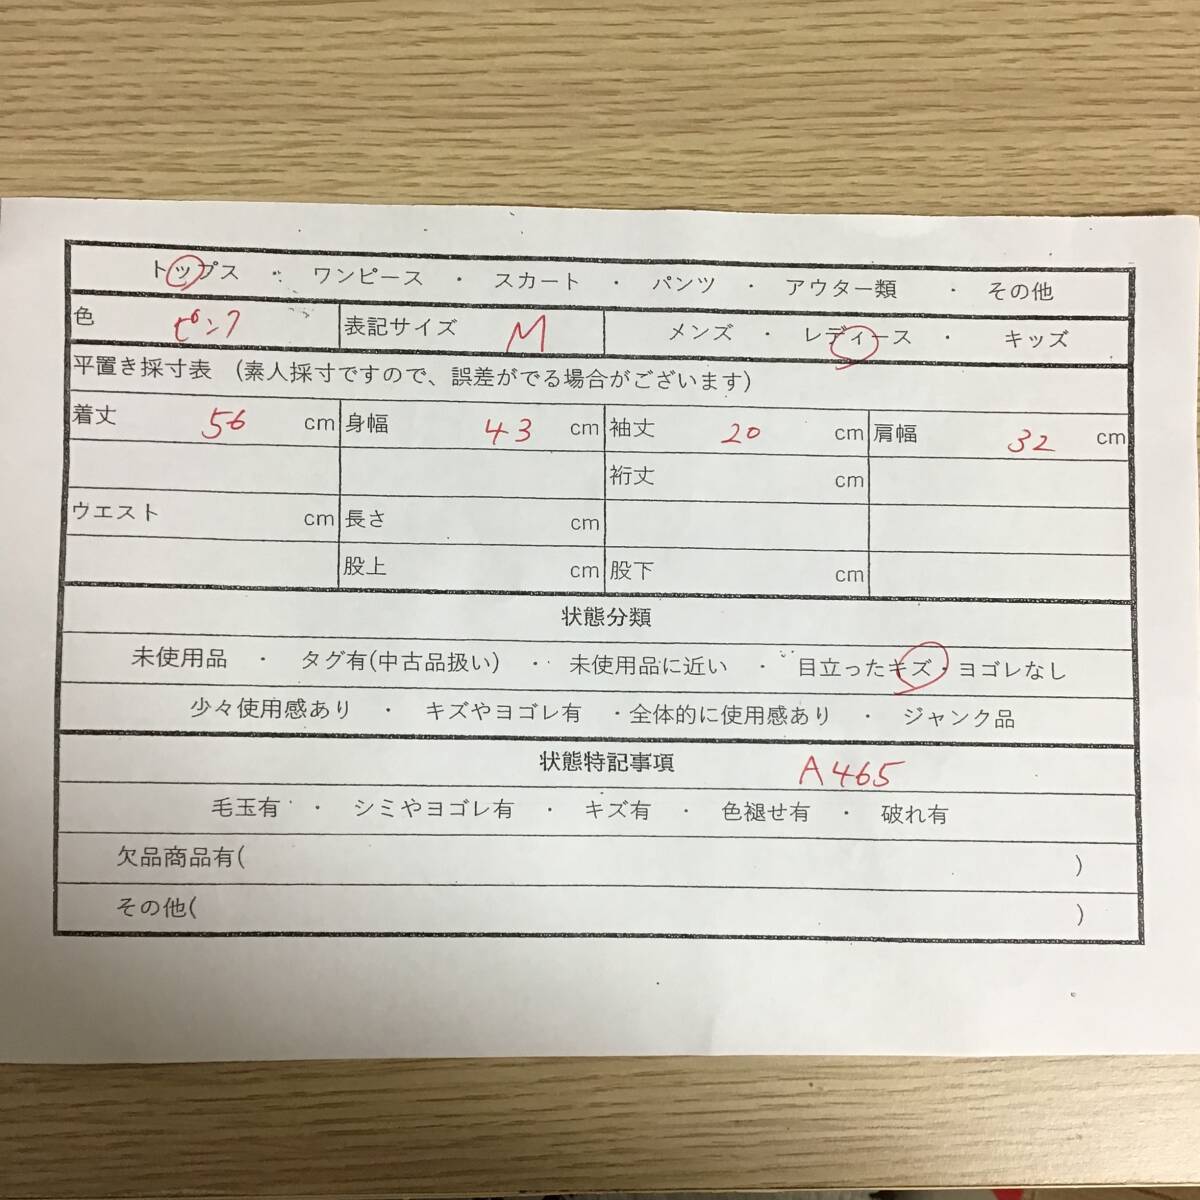 トップス ・ ワンピース ・ スカート ・ パンツ ・ アウター類 ・ その他
色 ピンク 表記サイズ M メンズ ・ レディース ・ キッズ
平置き採寸表 (素人採寸ですので、誤差がでる場合がございます)
着丈 56 cm 身幅 43 cm 袖丈 20 cm 肩幅 32 cm
裄丈 cm
ウエスト cm 長さ cm
股上 cm 股下 cm
状態分類
未使用品 ・ タグ有(中古品扱い) ・ 未使用品に近い ・ 目立ったキズ・ヨゴレなし
少々使用感あり ・ キズやヨゴレ有 ・全体的に使用感あり ・ ジャンク品
状態特記事項 A465
毛玉有 ・ シミやヨゴレ有 ・ キズ有 ・ 色褪せ有 ・ 破れ有
欠品商品有( )
その他( )